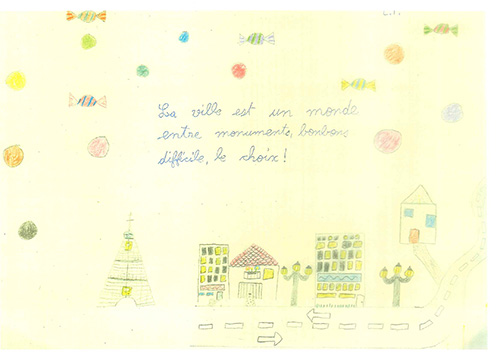 La ville est un monde
entre monuments, bonbons
difficile, le choix!